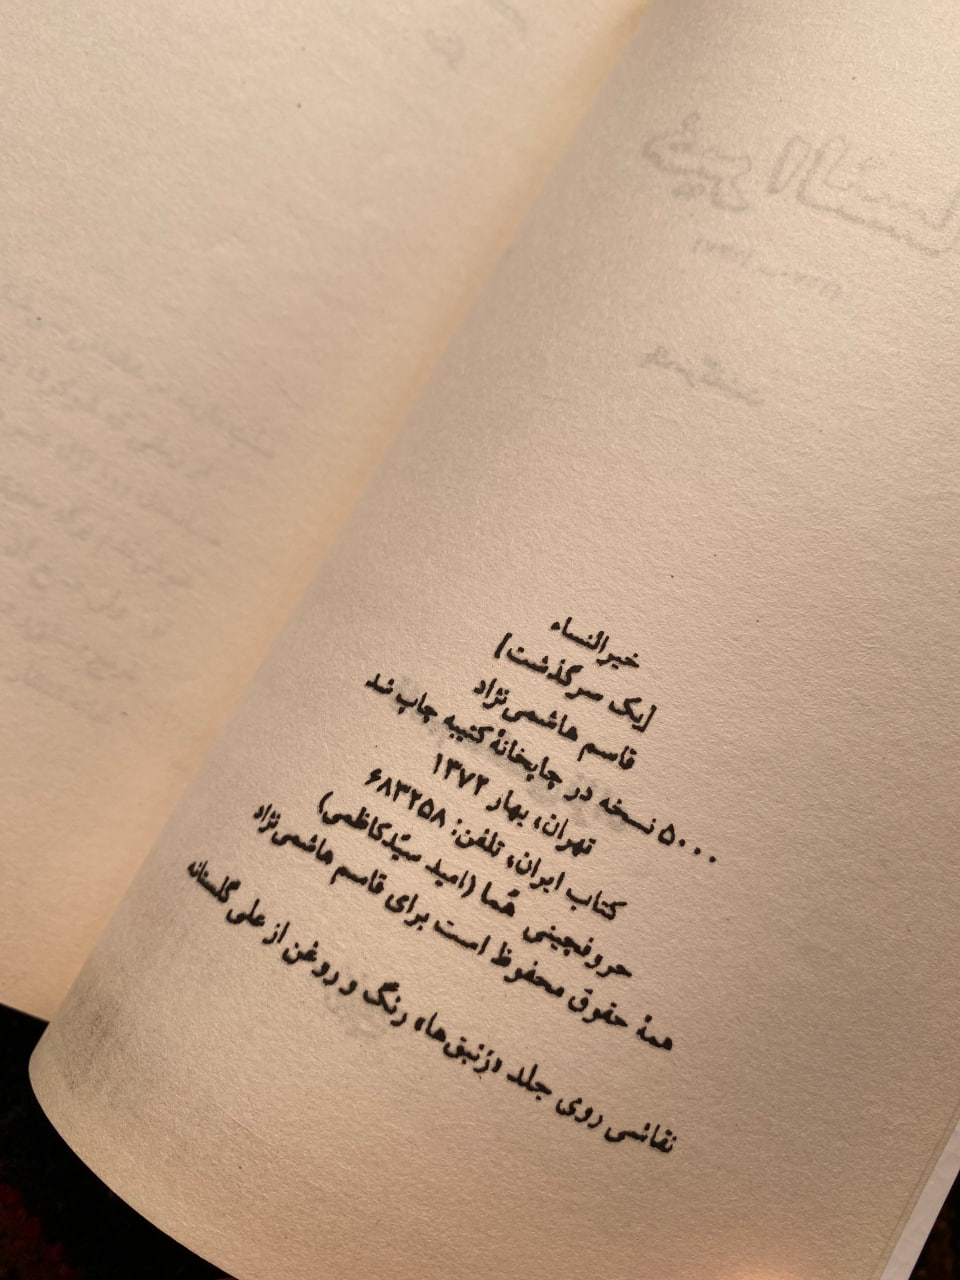 خیرالنساء
[یک سرگذشت]
قاسم هاشمی‌نژاد
۵۰۰۰ نسخه در چاپخانهٔ کتیبه چاپ شد
تهران، بهار ۱۳۷۲
کتاب ایران، تلفن: ۶۸۳۲۵۸
حروفچینی هُما (امید سیّدکاظمی)
همهٔ حقوق محفوظ است برای قاسم هاشمی‌نژاد
نقاشی روی جلد «زنبق‌ها» رنگ و روغن از علی گلستانه